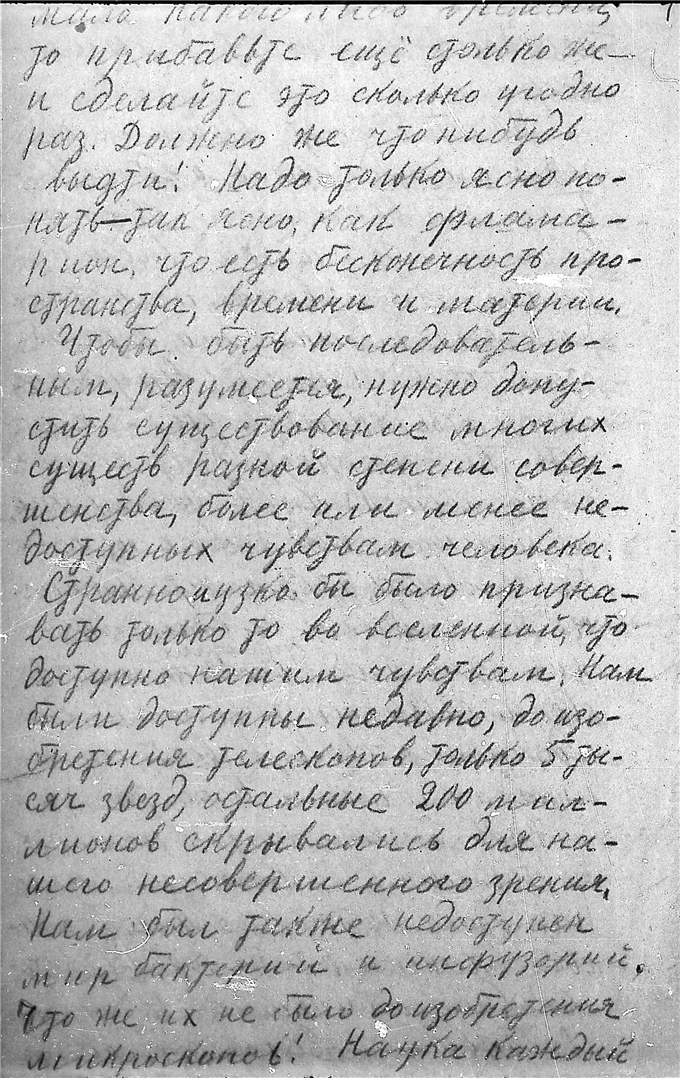 мало какого нибо времени,
то прибавьте ещё столько же—
и сделайте это сколько угодно
раз. Должно же что нибудь
выдти! Надо только ясно по-
нять—так ясно, как флама-
рион, что есть бесконечность про-
странства, времени и материи.
Чтобы быть последователь-
ным, разумеется, нужно допу-
стить существование многих
существ разной степени совер-
шенства, более или менее не-
доступных чувствам человека.
Странно и узко бы было призна-
вать только то во вселенной, что
доступно нашим чувствам. Нам
были доступны недавно, до изо-
бретения телескопов, только 5 ты-
сяч звезд, остальные 200 мил-
лионов скрывались для на-
шего несовершенного зрения.
Нам был также недоступен
мир бактерий и инфузорий.
Что же их не было до изобретения
микроскопов! Наука каждый